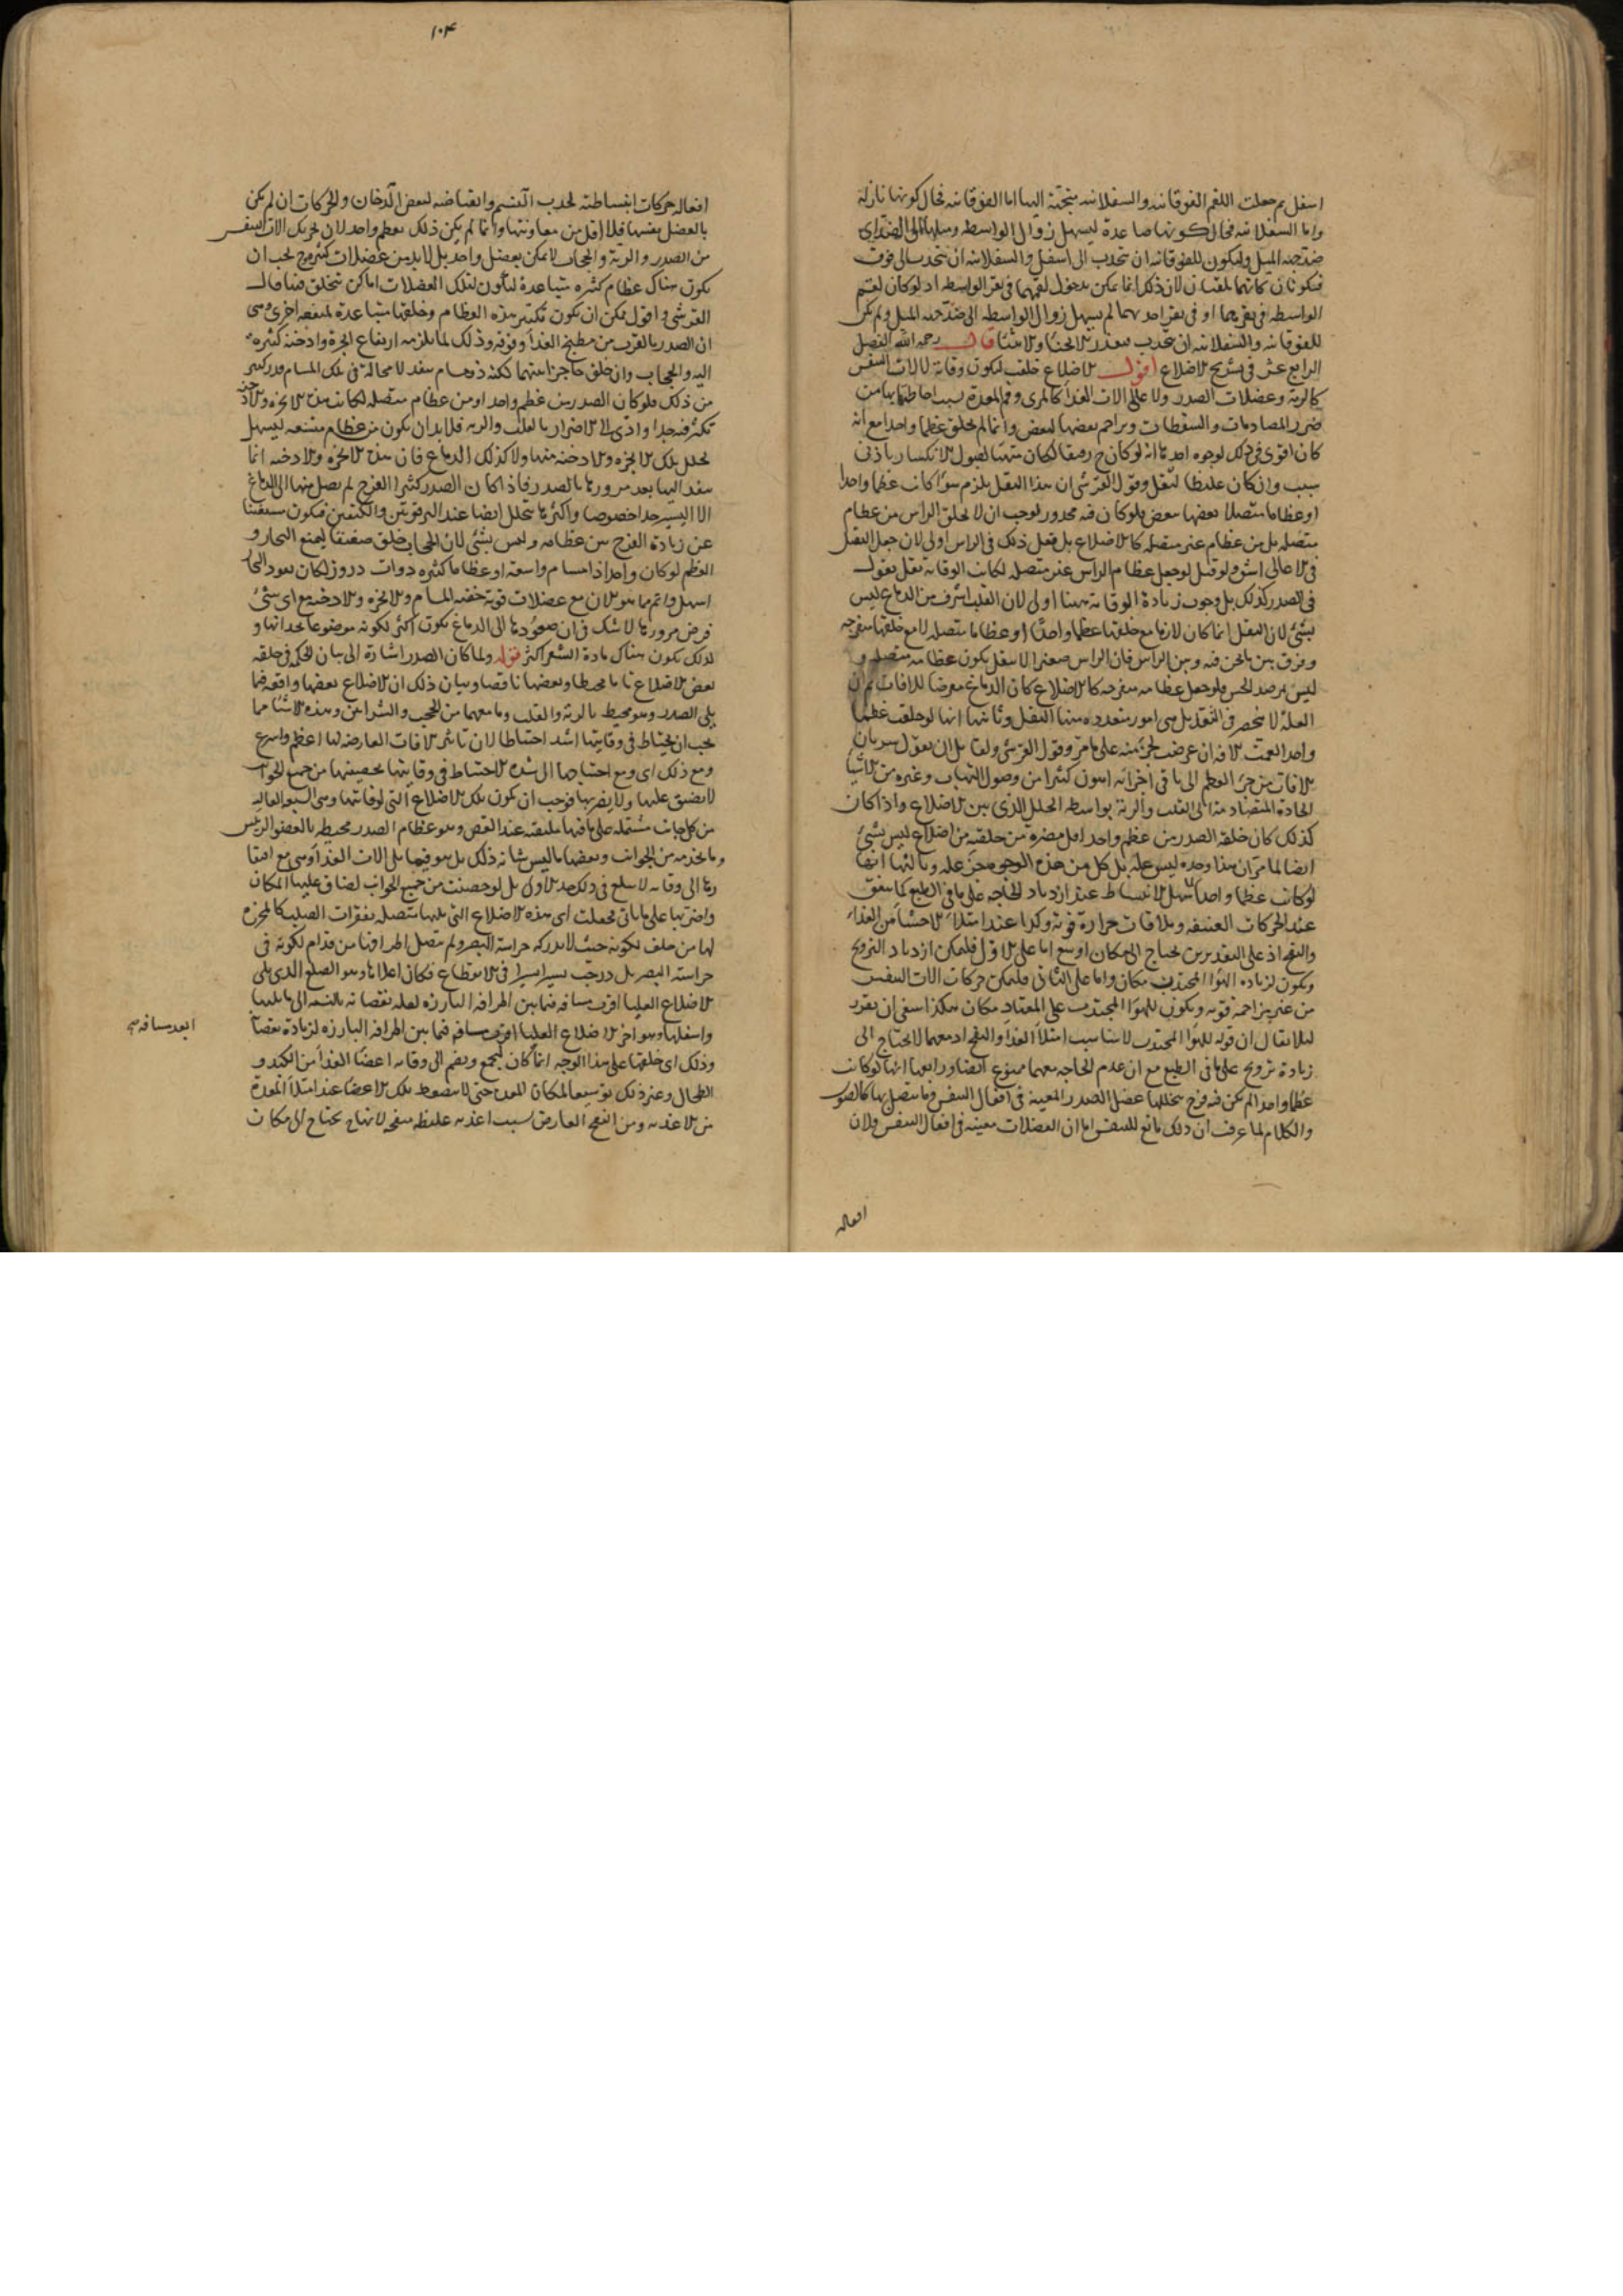 اسفل ثم جعلت اللقم الفوقانية والسفلانية متجهة اليها اما الفوقانية فحال كونها نازلة
واما السفلانية فحال كونها صاعدة ليسهل زوال الواسطة وميلها الى الضد اى
ضد جهة الميل وليكون للفوقانية ان تنجذب الى اسفل والسفلانية ان تنجذب الى فوق
فيكونان كانهما يلتقيان لان ذلك انما يمكن بدخول لقمهما فى نقر الواسطة اذ لو كان لقم
الواسطة فى نقرتهما او فى نقر احدهما لم يسهل زوال الواسطة الى ضد جهة الميل ولم يكن
للفوقانية والسفلانية ان تنجذب الانحناء والانثناء قال رحمه الله الفصل
الرابع عشر فى تشريح الاضلاع اقول الاضلاع خلقت ليكون وقاية لالات التنفس
كالرية وعضلات الصدر ولاعالى الات الغذا كالمرى وفم المعدة بسبب احاطتها بها من
ضرر المصادمات والسقطات وتزاحم بعضها لبعض وانما لم يخلق عظما واحدا مع انه
كان اقوى فى ذلك لوجوه احدها انه لو كان ح رقيقا لكان متهيئا لقبول الانكسار بادنى
سبب وان كان غليظا لثقل وقول القرشى ان هذا الثقل يلزم سواء كانت عظما واحدا
او عظاما متصلا بعضها ببعض فلو كان فيه محذور لوجب ان لا يخلق الراس من عظام
متصلة بل من عظام غير متصلة كالاضلاع بل فعل ذلك فى الراس اولى لان جعل الثقل
فى الاعالى اشق ولو قيل لو جعل عظام الراس غير متصلة لكانت الوقاية تقل نقول
فى الصدر كذلك بل وجوب زيادة الوقاية ههنا اولى لان القلب اشرف من الدماغ ليس
بشئ لان الثقل انما كان لازما مع خلقتها عظما واحدا او عظاما متصلة لا مع خلقتها منفرجة
وفرق بين ما نحن فيه وبين الراس فان الراس صغير لا يثقل بكون عظامه متصلة و
ليس يرصد الحس فلو جعل عظامه منفرجة كالاضلاع كان الدماغ معرضا للافات ثم ان
العلة لا تنحصر فى الثقل بل هى امور متعددة منها الثقل وثانيها انها لو خلقت عظما
واحدا لعمت الافة ان عرضت لجزء منه على ما مر وقول القرشى ولقائل ان يقول سريان
الافات من جزء العظم الى باقى اجزائه اهون كثيرا من وصول التهاب وغيره من الاشيا
الحادة المتضادة منه الى القلب والرية بواسطة الخلل الذى بين الاضلاع واذا كان
كذلك كان خلقة الصدر من عظم واحد اقل مضرة من خلقته من اضلاع ليس بشئ
ايضا لما مر ان هذا وحده ليس علة بل كل من هذه الوجوه جزء علة وثالثها انها
لو كانت عظما واحدا لم يسهل الانبساط عند ازدياد الحاجة على ما فى الطبع كما يتفق
عند الحركات العنيفة وملاقات حرارة قوية وكذا عند امتلاء الاحشا من الغذاء
والنفخ اذ على التقديرين يحتاج الى مكان اوسع اما على الاول فليمكن ازدياد الترويح
ويكون لزيادة الهوا المجتذب مكان واما على الثانى فليمكن حركات الات التنفس
من غير مزاحمة قوية ويكون للهوا المجتذب على المعتاد مكان هكذا ينبغى ان يقرر
لئلا يقال ان قوله للهوا المجتذب لا يناسب امتلا الغذا والنفخ اذ معهما لا يحتاج الى
زيادة ترويح على ما فى الطبع مع ان عدم الحاجة معهما ممنوع ايضا ورابعها انها لو كانت
عظما واحدا لم يكن فيه فرج يتخللها عضل الصدر المعينة فى افعال التنفس وما يتصل بها كالصوت
والكلام لما عرف ان ذلك مانع للتنفس اما ان العضلات معينة فى افعال التنفس فلان
افعاله
١٠٤
افعاله حركات انبساطية لجذب النسيم وانقباضية لنفض الدخان والحركات ان لم يكن
بالعضل نفسها فلا اقل من معاونتها وانما لم يكن ذلك بعظم واحد لان تحريك الات التنفس
من الصدر والرية والحجاب لا يمكن بعضل واحد بل لا بد من عضلات كثيرة وح يجب ان
يكون هناك عظام كثيرة متباعدة ليكون لتلك العضلات اماكن تتخلق فيها قال
القرشى واقول يمكن ان يكون تكثير هذه العظام وخلقتها متباعدة لمنفعة اخرى وهى
ان الصدر بالقرب من مطبخ الغذا وفوقه وذلك لما يلزمه ارتفاع ابخرة وادخنة كثيرة
اليه والحجاب وان خلق حاجزا بينهما لكنه ذو مسام ينفذ لا محالة فى تلك المسام قدر كثير
من ذلك فلو كان الصدر من عظم واحد او من عظام متصلة لكانت هذه الابخرة والادخنة
تكثر فيه جدا وادى الى الاضرار بالقلب والرية فلا بد ان يكون من عظام متسعة ليسهل
تحلل تلك الابخرة والادخنة منها ولا كذلك الدماغ فان هذه الابخرة والادخنة انما
ينفذ اليها بعد مرورها بالصدر فاذا كان الصدر كثير الفرج لم يصل منها الى الدماغ
الا اليسير جدا خصوصا واكثرها يتحلل ايضا عند الترقوتين والكتفين فيكون مستغنيا
عن زيادة الفرج بين عظامه وليس بشئ لان الحجاب خلق صفيقا ليمنع البخار و
العظم لو كان واحدا ذا مسام واسعة او عظاما كثيرة ذوات دروز لكان نفوذ البخار
اسهل واتم مما هو الان مع عضلات قوية خفية المسام والابخرة والادخنة مع اى شئ
فرض مرورها لا شك فى ان صعودها الى الدماغ يكون اكثر لكونه موضوعا بحذائها و
لذلك يكون هناك مادة الشعر اكثر قوله ولما كان الصدر اشارة الى بيان الحكمة فى خلقة
بعض الاضلاع تاما محيطا وبعضها ناقصا وبيان ذلك ان الاضلاع بعضها واقعة فيما
يلى الصدر وهو محيط بالرية والقلب وما معهما من الحجب والشرائين وهذه الاشيا مما
يجب ان يحتاط فى وقايتها اشد احتياطا لان تاثير الافات العارضة لها اعظم واسرع
ومع ذلك اى ومع احتياجها الى شدة الاحتياط فى وقايتها تحصينها من جميع الجوانب
لا يضيق عليها ولا يضر بها فوجب ان يكون تلك الاضلاع التى لوقايتها وهى السبع العالية
من كل جانب مشتملة على ما فيها ملتقية عند القص وهو عظام الصدر محيطة بالعضو الرئيس
وما يخدمه من الجوانب وبعضها ما ليس شانه ذلك بل هو فيما يلى الات الغذا وهى مع افتقا
رها الى وقاية لا يبلغ فى ذلك حد الاول بل لو حصنت من جميع الجوانب لضاق عليها المكان
واضر بها على ما ياتى فجعلت اى هذه الاضلاع التى يليها متصلة بفقرات الصلب كالمحرزة
لها من خلف لكونه حيث لا يدركه حراسة البصر ولم تتصل اطرافها من قدام لكونه فى
حراسة البصر بل درجت يسيرا يسيرا فى الانقطاع فكان اعلاها وهو الضلع الذى يلى
الاضلاع العليا اقرب مسافة فيما بين اطرافه البارزة لقلة نقصانه بالنسبة الى ما يليها
واسفلها وهو اخر الاضلاع العليا اقرب مسافة فيما بين اطرافه البارزة لزيادة نقصانه
ابعد مسافة صح
وذلك اى خلقتها على هذا الوجه انما كان ليجمع ويضم الى وقاية اعضا الغذا من الكبد و
الطحال وغير ذلك توسيعا لمكان المعدة حتى لا ينضغط تلك الاعضا عند امتلا المعدة
من الاغذية ومن النفخ العارض بسبب اغذية غليظة منفخة لانها ح يحتاج الى مكان